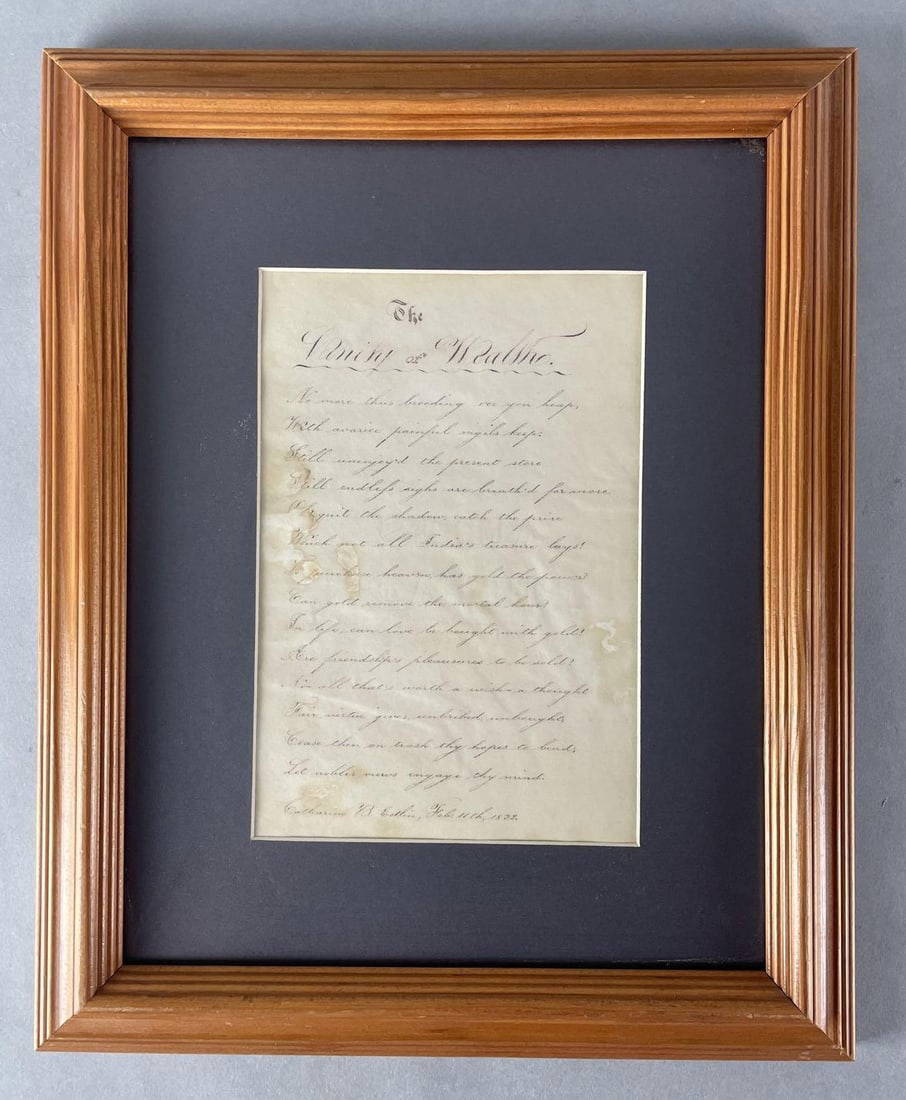 The
Vanity of Wealth.
No more thus brooding o'er yon heap,
With avarice painful vigils keep:
Still unenjoy'd the present store
Still endless sighs are breath'd for more
Oh quit the shadow, catch the prize
Which not all India's treasure buys!
To purchase heaven, has gold the power?
Can gold remove the mortal hour?
In life, can love be bought with gold?
Are friendship's pleasures to be sold?
No all that's worth a wish - a thought
Fair virtue gives, unbribed, unbought,
Cease then on trash thy hopes to bend,
Let nobler views engage thy mind.
Catharine B. Edlin, Feb. 11th, 1832.